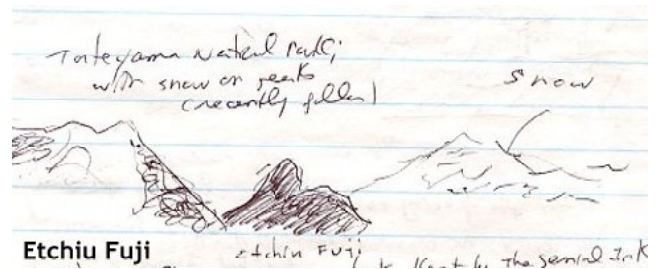 Tateyama National Park;
with snow on peaks
(recently fallen)
Snow
Etchiu Fuji
Etchiu Fuji
by The Seminal Ink